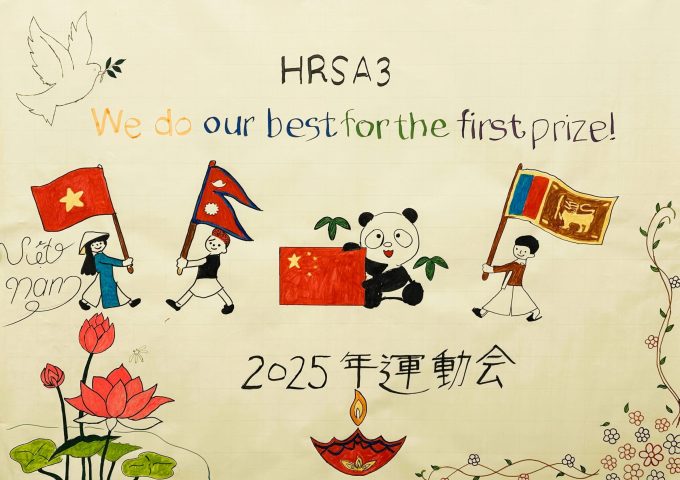 HRSA3
We do our best for the first prize!
Việt
nam
2025年運動会